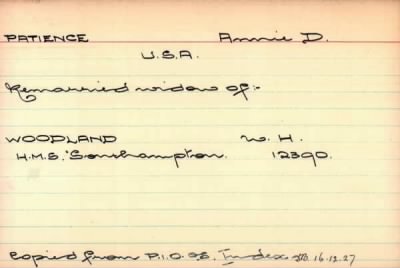 PATIENCE Annie D.
U.S.A.
Remarried widow of :-
WOODLAND W. H.
H.M.S. "Southampton. 12390.
Copied from P.I.O.S. Index 16.12.27